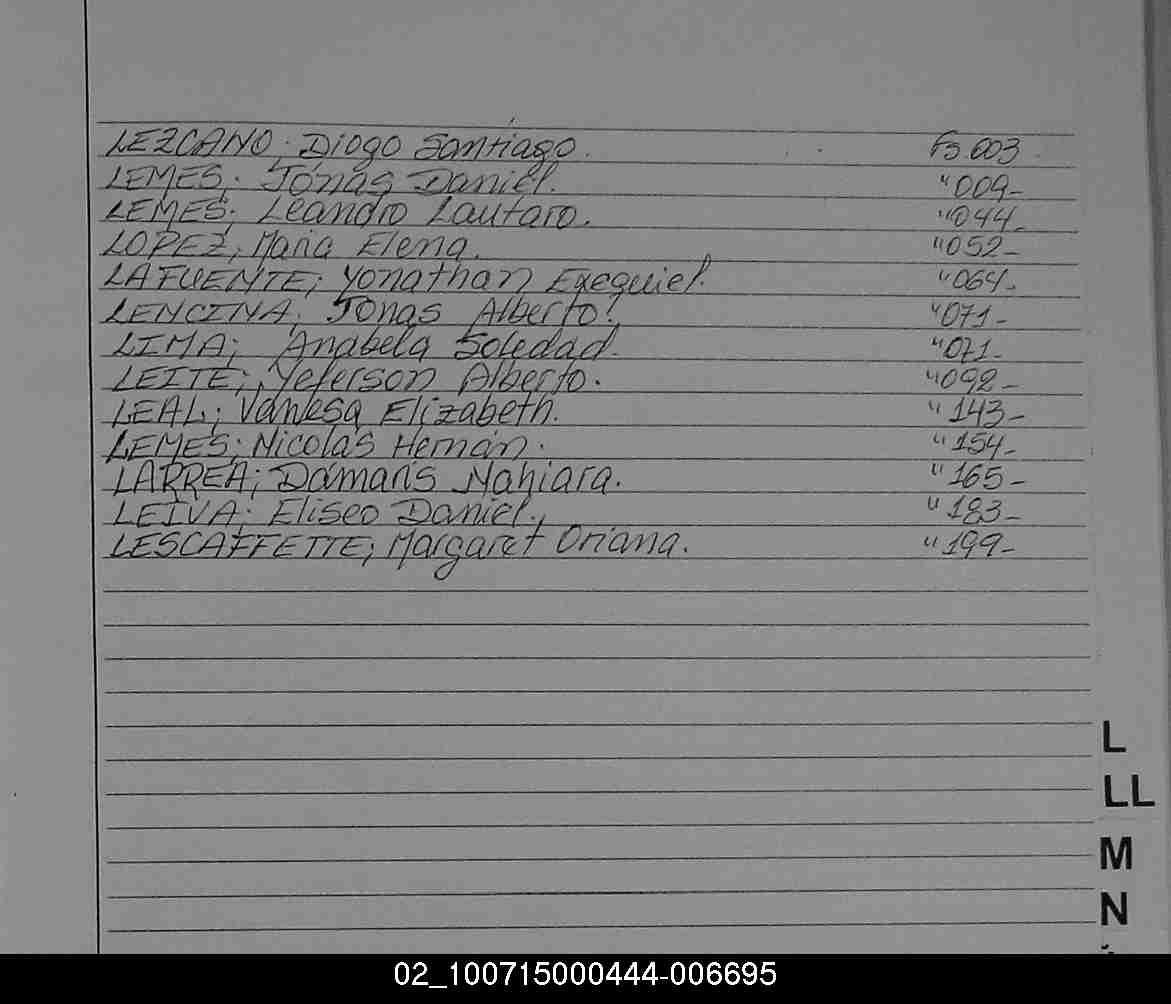 LEZCANO; Diogo Santiago. Fs 003
LEMES; Jonás Daniel. " 009-
LEMES; Leandro Lautaro. " 044-
LOPEZ; Maria Elena. " 052-
LAFUENTE; Yonathan Exequiel. " 064-
LENCINA; Jonas Alberto. " 071-
LIMA; Anabela Soledad. " 071-
LEITE; Yeferson Alberto. " 092-
LEAL; Vanesa Elizabeth. " 143-
LEMES; Nicolás Hernán. " 154-
LARREA; Dámaris Nahiara. " 165-
LEIVA; Eliseo Daniel. " 183-
LESCAFFETTE; Margaret Oriana. " 199-
L
LL
M
N
02_100715000444-006695